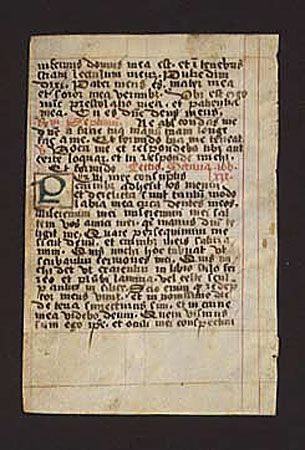 infernus domus mea est. et ī tenebris
straui lectulum meū. Putredini
dixi. Pater meus es. mater mea
et soror mea vermibꝫ. Vbi est ergo
nūc prestolatio mea. et patientia
mea. Tu es dñe deus meus.
ne a facie tua manū tuam longe
fac a me. Et formido tua me terreat
Voca me et respondebo tibi aut
certe loquar. et tu responde michi.
Et formido Lectio. Octaua
Pelli mee consumptis
carnibꝫ adhesit os meum
et derelicta sunt tantū modo
labia mea circa dentes meos.
Miseremini mei miseremini mei sal
tem vos amici mei. quia manus dñi te
tigit me. Quare persequimini me
sicut deus. et carnibꝫ meis satura
mini. Quis michi tribuat vt
scribantur sermones mei. Quis mi
chi det vt exarentur in libro stilo fer
reo et plūbi lamina. vel celte sculp
antur in silice. Scio enim qꝫ redemp
tor meus viuit. et in nouissimo die
de terra surrecturus sum. et in carne
mea videbo deum. Quem visurus
sum ego ipse. et oculi mei conspecturi